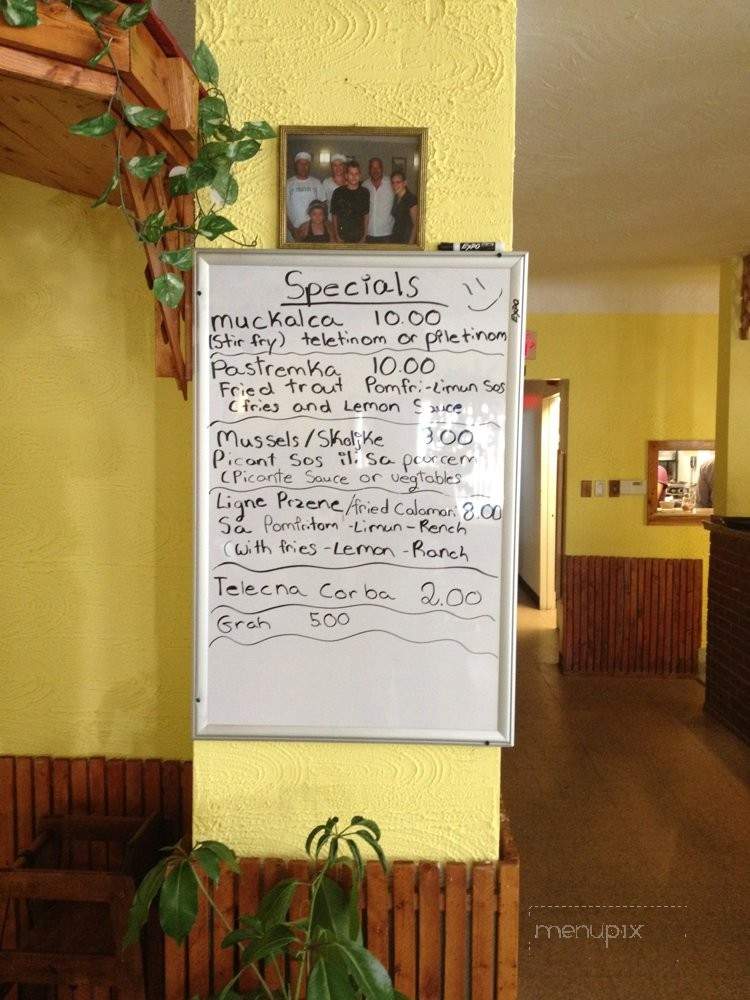 EXPO
Specials
EXPO
muckalca 10.00
(Stir fry) teletinom or piletinom
Pastremka 10.00
Fried trout Pomfri-Limun Sos
(fries and Lemon Sauce
Mussels/Skoljke 8.00
Picant Sos ili Sa povrcem
(Picante Sauce or vegtables
Ligne Przene/fried Calamari 8.00
Sa Pomfritom-Limun-Rench
(with fries-Lemon-Ranch
Telecna Corba 2.00
Grah 500
menupix